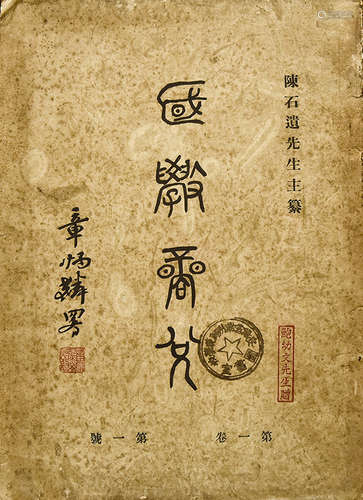 陳石遺先生主纂
國學商兌
章炳麟署
鮑幼文先生贈
第一卷
第一號